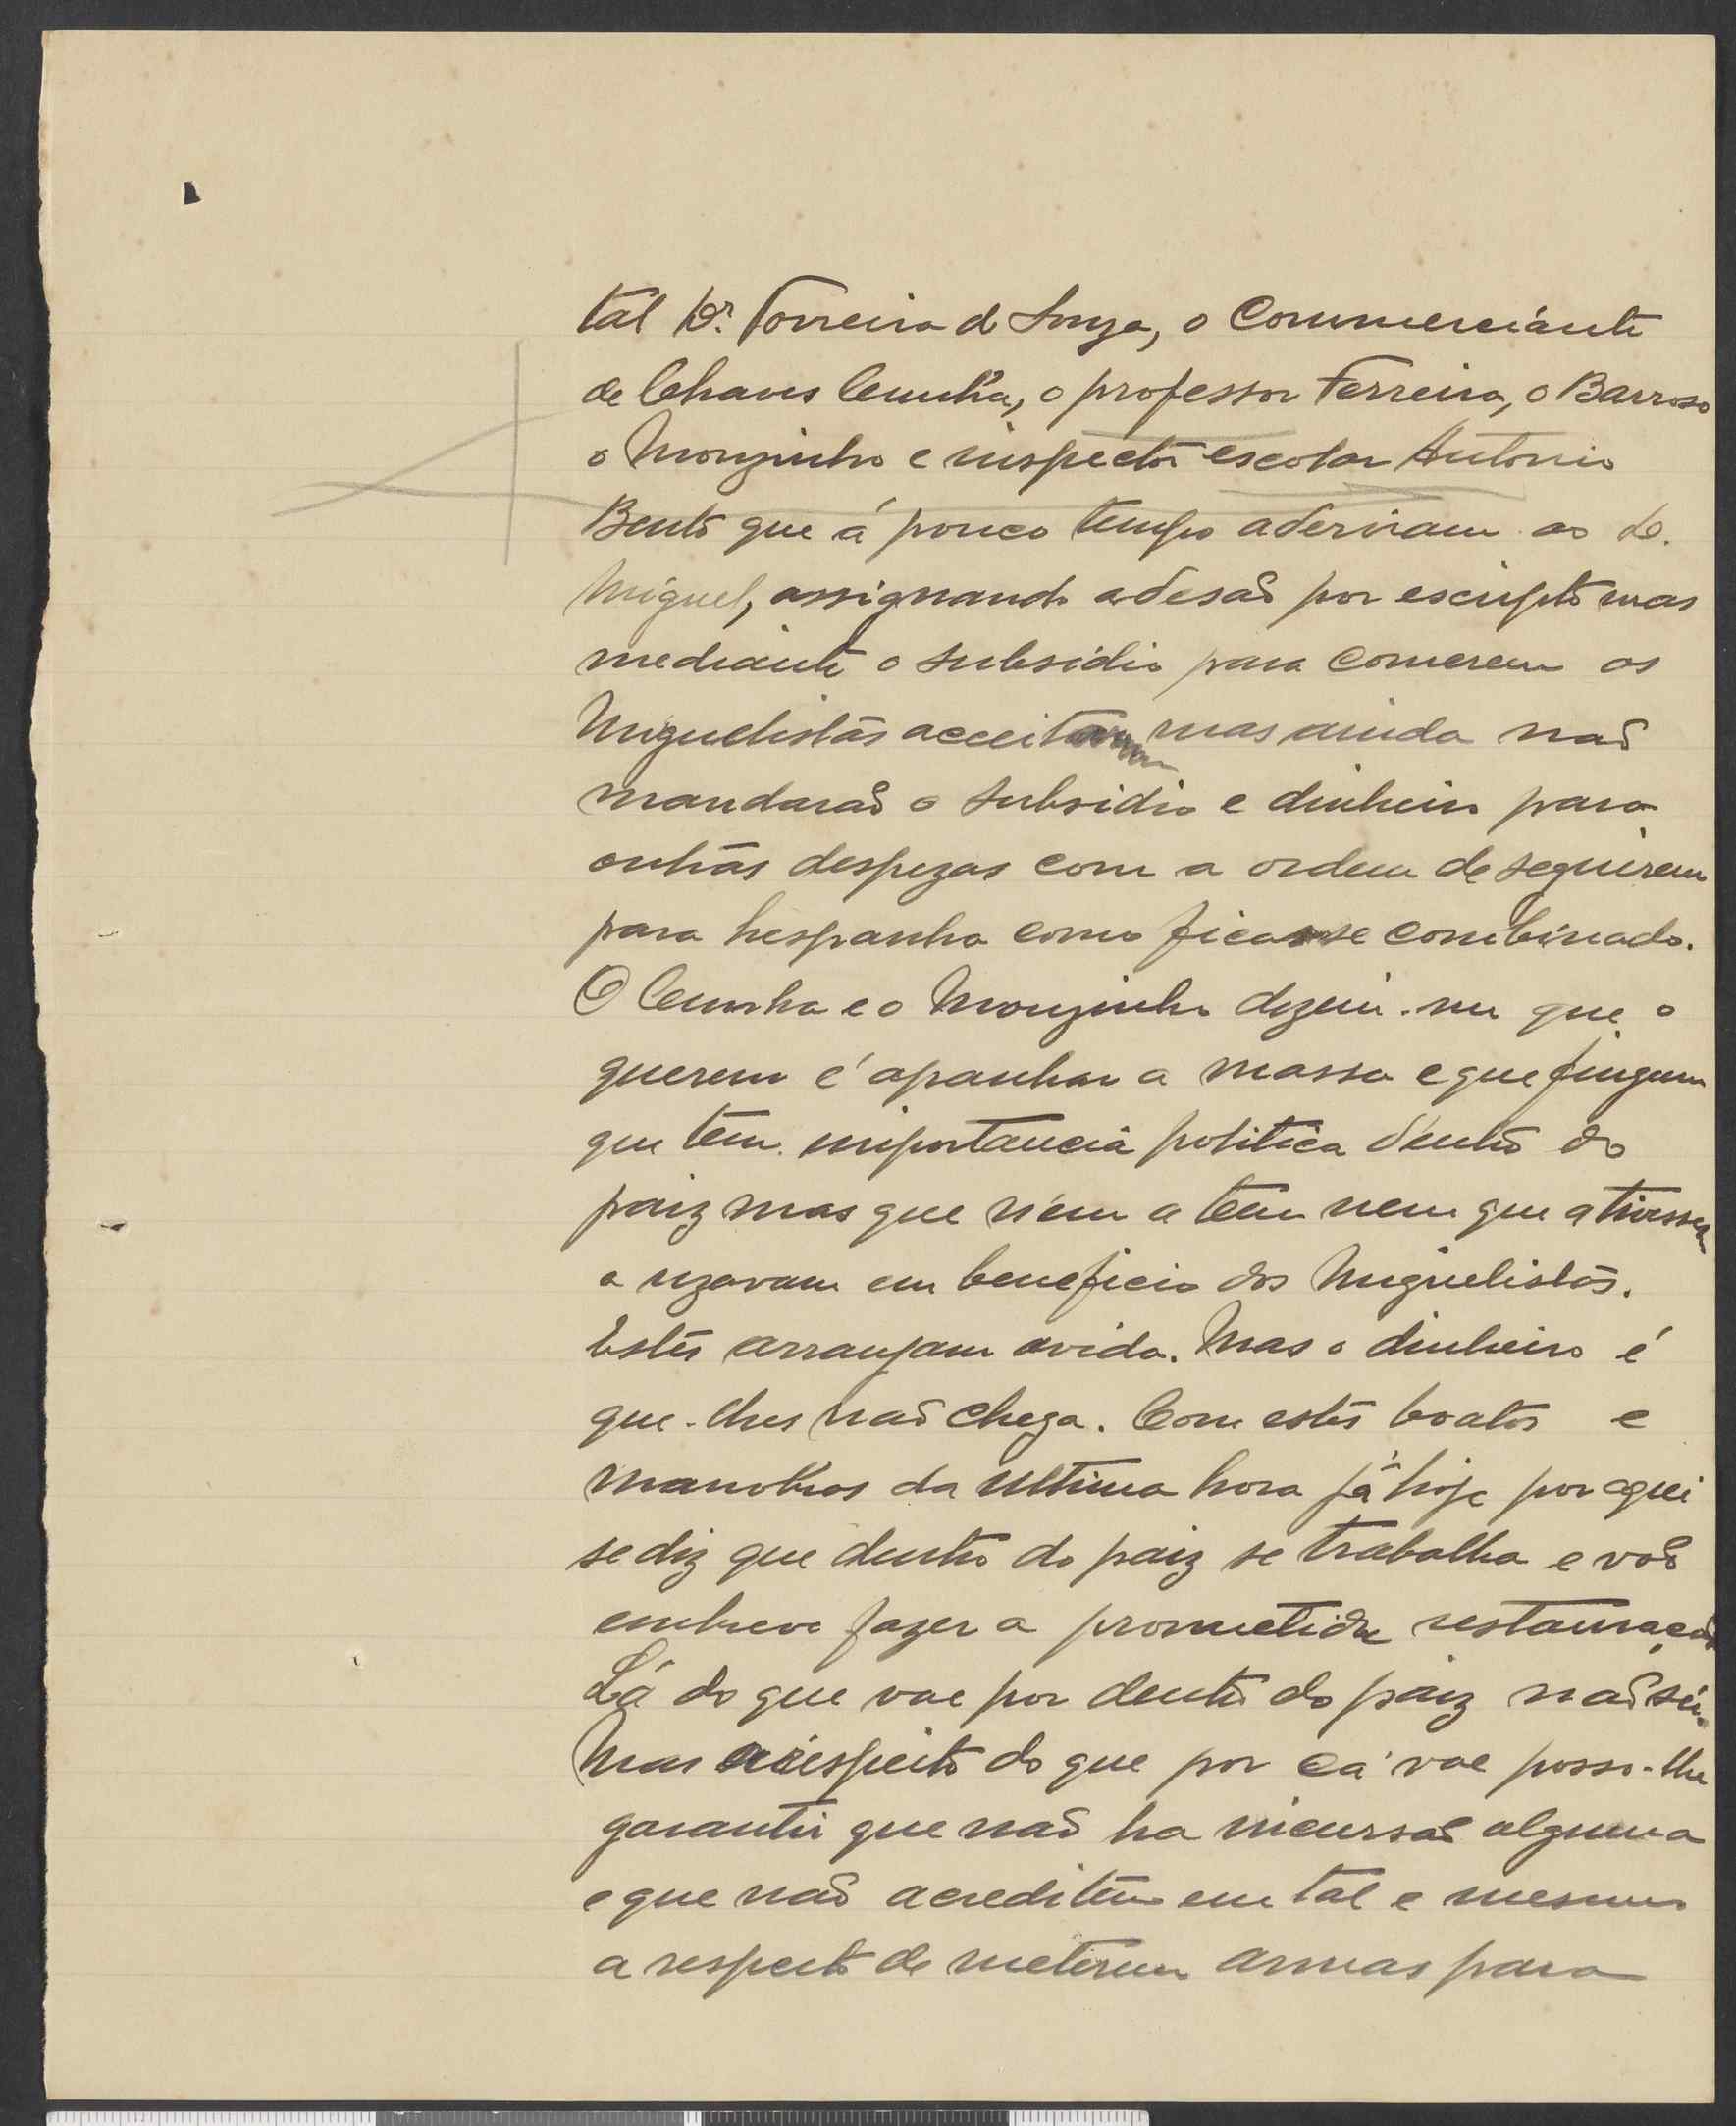 tál Dr. Torreira de Souza, o Commerciánte
de Chaves Cunha, o professor Ferreira, o Barroso
o Mouzinho e inspector escolar Antonio
Bento que á pouco tempo aderiram ao D.
Miguel, assignando adesaõ por escripto mas
mediante o subsidio para comerem os
Miguelistas acceitaram mas ainda naõ
mandaraõ o subsidio e dinheiro para
outras despezas com a ordem de seguirem
para hespanha como ficasse combinado.
O Cunha e o Mouzinho dizem-me que o
querem é apanhar a massa e que fingem
que têm importancia politica dentro do
paiz mas que nem a têm nem que a tivessem
a uzavam em beneficio dos Miguelistas.
Estes arranjam a vida. Mas o dinheiro é
que-lhes naõ chega. Com estes boatos e
manobras da ultima hora já hoje por aqui
se diz que dentro do paiz se trabalha e vaõ
embreve fazer a prometida restauraçaõ
Lá do que vae por dentro do paiz naõ sei.
Mas a respeito do que por cá vae posso-lhe
garantir que naõ ha incursaõ alguma
e que naõ acreditem em tal e mesmo
a respeito de meterem armas para